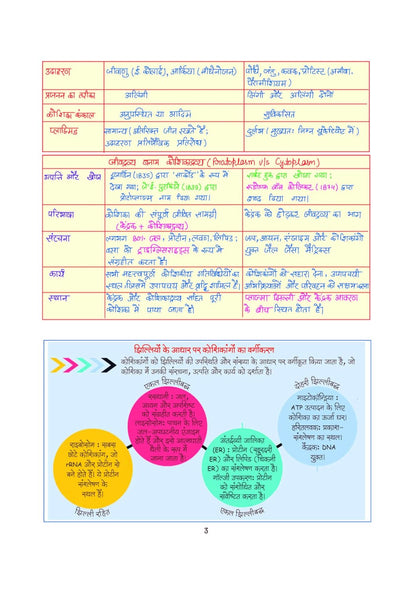 उदाहरण
जीवाणु (ई कोलाई), आर्किया (मीथैनोजन)
पौधे, जंतु, कवक, प्रोटिस्ट (अमीबा, पैरामीशियम)
प्रजनन का तरीका
अलिंगी
लिंगी और अलिंगी दोनों
कोशिका कंकाल
अनुपस्थित या आदिम
सुविकसित
प्लाज्मिड
सामान्य (अतिरिक्त जीन रखते हैं;
उदाहरण प्रतिजैविक प्रतिरोध)
दुर्लभ (मुख्यतः निम्न यूकैरियोट में)
जीवद्रव्य बनाम कोशिकाद्रव्य (Protoplasm v/s Cytoplasm)
उत्पत्ति और खोज
डुजार्डिन (1835) द्वारा "सार्कोड" के रूप में
देखा गया; जे.ई. पुरकिंजे (1839) द्वारा
प्रोटोप्लाज्म नाम दिया गया।
द्वारा खोजा गया;
रूडोल्फ वॉन कोलिकर (1874) द्वारा
शब्द दिया गया।
परिभाषा
कोशिका की संपूर्ण जीवित सामग्री
(केंद्रक + कोशिकाद्रव्य)
केंद्रक को छोड़कर, जीवद्रव्य का भाग
संरचना
लगभग 80% जल, प्रोटीन, लवण, लिपिड;
वसा को ट्राइग्लिसराइड्स के रूप में
संग्रहीत करता है।
जल, आयन, एंजाइम और कोशिकांगों
युक्त जैल जैसा मैट्रिक्स
कार्य
सभी महत्वपूर्ण कोशिकीय गतिविधियों का
स्थल जिसमें उपापचय और वृद्धि शामिल है।
कोशिकांगों को सहारा देना, उपापचयी
अभिक्रियाओं और परिवहन को सक्षम बनाना
स्थान
केंद्रक और कोशिकाद्रव्य सहित पूरी
कोशिका में पाया जाता है।
प्लाज्मा झिल्ली और केंद्रक आवरण
के बीच स्थित होता है।
झिल्लियों के आधार पर कोशिकांगों का वर्गीकरण
कोशिकांगों को झिल्लियों की उपस्थिति और संख्या के आधार पर वर्गीकृत किया जाता है, जो
कोशिका में उनकी संरचना, उत्पत्ति और कार्य को दर्शाता है।
राइबोसोम : सबसे
छोटे कोशिकांग, जो
rRNA और प्रोटीन से
बने होते हैं। ये प्रोटीन
संश्लेषण के
स्थल हैं।
झिल्ली रहित
एकल झिल्लीबद्ध
रसधानी : जल,
आयन और अपशिष्ट
को संग्रहित करती है।
लाइसोसोम: पाचन के लिए
जल-अपघटनीय एंजाइम
होते हैं और इसे आत्मघाती
थैली के रूप में
जाना जाता है।
अंतर्द्रव्यी जालिका
(ER) : प्रोटीन (खुरदुरी
ER) और लिपिड (चिकनी
ER) का संश्लेषण करता है।
गॉल्जी उपकरण: प्रोटीन
को संशोधित और
संवेष्टित करता है।
एकल झिल्लीबद्ध
दोहरी झिल्लीबद्ध
माइटोकॉन्ड्रिया :
ATP उत्पादन के लिए
कोशिका का ऊर्जा घर।
हरितलवक: प्रकाश-
संश्लेषण का स्थल।
केंद्रक: DNA
युक्त।
3